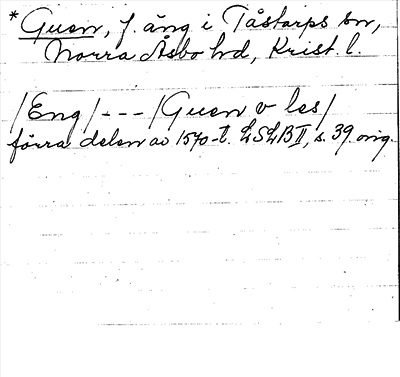 * Guen, f. äng i Tåstarps sn,
Norra Åsbo hd, Krist. l.
/Eng/ - - - /Guen v les/
förra delen av 1570-t. LSLB II, s. 39. orig.